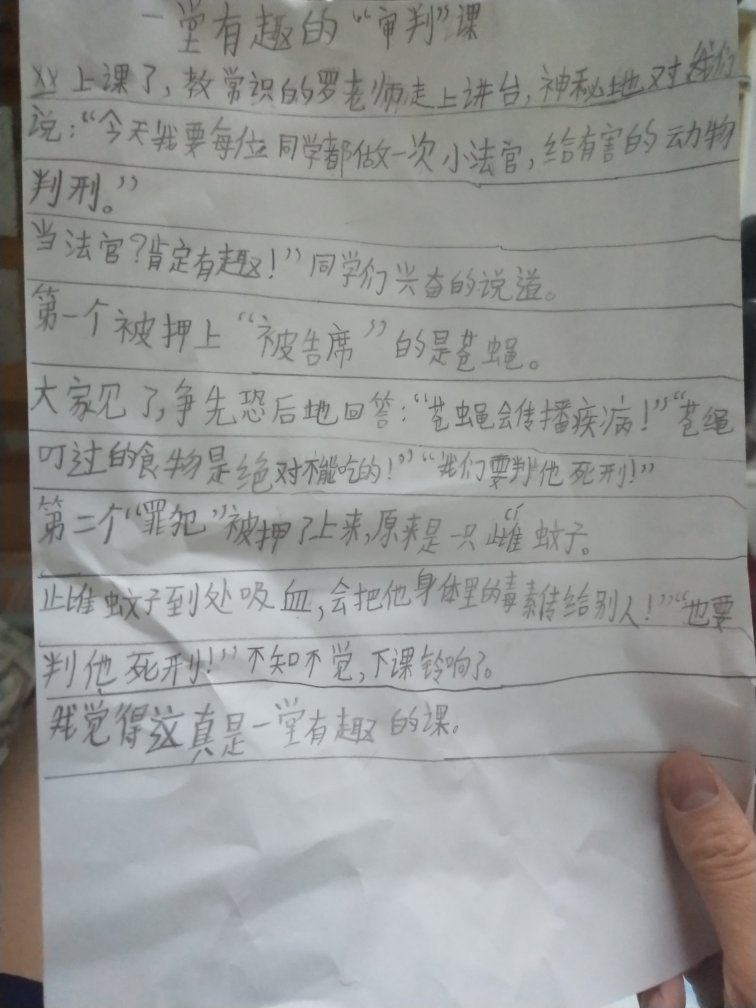 一堂有趣的“审判”课
XX上课了,教常识的罗老师走上讲台,神秘地对我们
说:“今天我要每位同学都做一次小法官,给有害的动物
判刑。”
当法官?肯定有趣!”同学们兴奋的说道。
第一个被押上“被告席”的是苍蝇。
大家见了,争先恐后地回答:“苍蝇会传播疾病!”“苍绳
叮过的食物是绝对不能吃的!”“我们要判他死刑!”
第二个“罪犯”被押了上来,原来是一只雌蚊子。
雌蚊子到处吸血,会把他身体里的毒素传给别人!”“也要
判他死刑!”不知不觉,下课铃响了。
我觉得这真是一堂有趣的课。